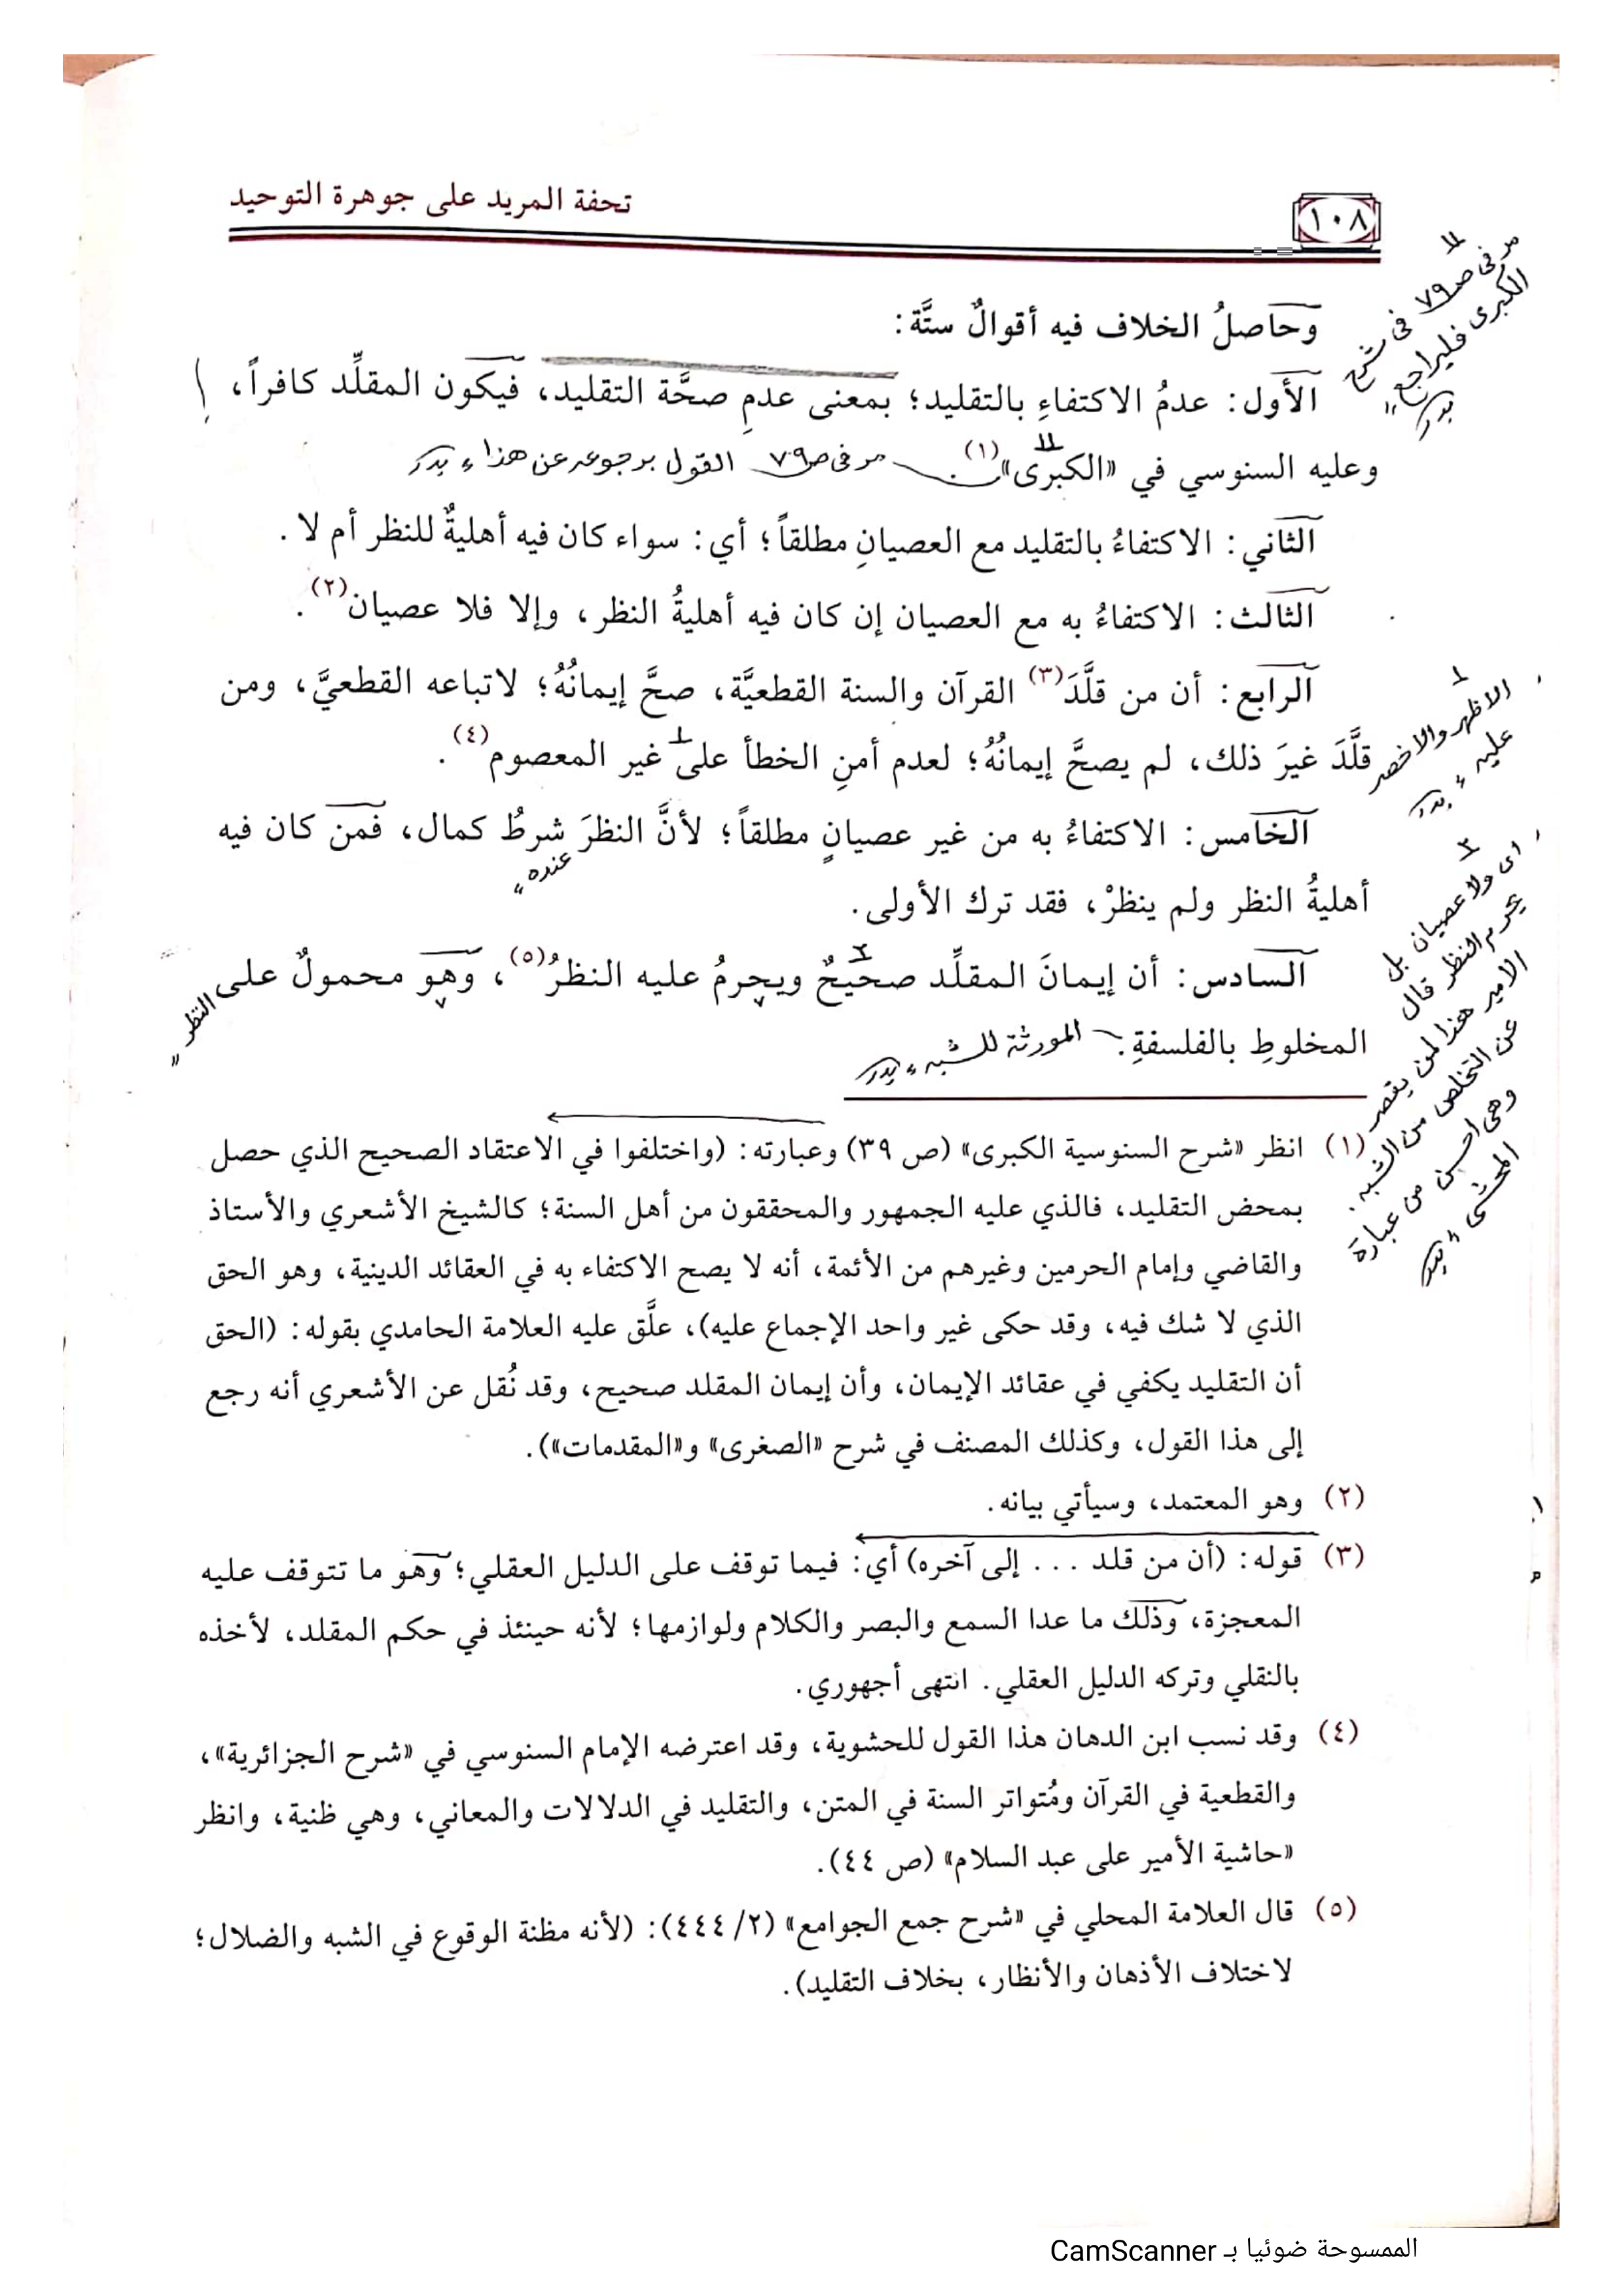 تحفة المريد على جوهرة التوحيد
١٠٨
وحاصلُ الخلاف فيه أقوالٌ ستَّة:
الأول: عدمُ الاكتفاءِ بالتقليد؛ بمعنى عدمِ صحَّة التقليد، فيكون المقلِّد كافراً،
وعليه السنوسي في «الكبرى»(١). مر فى ص٧٩ القول برجوعه عن هذا بدر
الثاني: الاكتفاءُ بالتقليد مع العصيانِ مطلقاً؛ أي: سواء كان فيه أهليةٌ للنظر أم لا.
الثالث: الاكتفاءُ به مع العصيان إن كان فيه أهليةُ النظر، وإلا فلا عصيان(٢).
الرابع: أن من قلَّدَ(٣) القرآن والسنة القطعيَّة، صحَّ إيمانُهُ؛ لاتباعه القطعيَّ، ومن
قلَّدَ غيرَ ذلك، لم يصحَّ إيمانُهُ؛ لعدم أمنِ الخطأ على غير المعصوم(٤).
الخامس: الاكتفاءُ به من غير عصيانٍ مطلقاً؛ لأنَّ النظرَ شرطُ كمال، فمن كان فيه
عنده
أهليةُ النظر ولم ينظرْ، فقد ترك الأولى.
السادس: أن إيمانَ المقلِّد صحيحٌ ويحرمُ عليه النظرُ(٥)، وهو محمولٌ على
النظر
المخلوطِ بالفلسفةِ. المورثة للشبه بدر
مر فى ص٧٩ فى شرح
الكبرى فليراجع
بدر
الاظهر والاخصر
عليه بدر
اى ولا عصيان بل
يحرم النظر قال
الامير هذا لمن يقصر
عن التخلص من الشبه.
وهى احسن من عبارة
المحشى بدر
(١) انظر «شرح السنوسية الكبرى» (ص ٣٩) وعبارته: (واختلفوا في الاعتقاد الصحيح الذي حصل
بمحض التقليد، فالذي عليه الجمهور والمحققون من أهل السنة؛ كالشيخ الأشعري والأستاذ
والقاضي وإمام الحرمين وغيرهم من الأئمة، أنه لا يصح الاكتفاء به في العقائد الدينية، وهو الحق
الذي لا شك فيه، وقد حكى غير واحد الإجماع عليه)، علَّق عليه العلامة الحامدي بقوله: (الحق
أن التقليد يكفي في عقائد الإيمان، وأن إيمان المقلد صحيح، وقد نُقل عن الأشعري أنه رجع
إلى هذا القول، وكذلك المصنف في شرح «الصغرى» و«المقدمات»).
(٢) وهو المعتمد، وسيأتي بيانه.
(٣) قوله: (أن من قلد ... إلى آخره) أي: فيما توقف على الدليل العقلي؛ وهو ما تتوقف عليه
المعجزة، وذلك ما عدا السمع والبصر والكلام ولوازمها؛ لأنه حينئذ في حكم المقلد، لأخذه
بالنقلي وتركه الدليل العقلي. انتهى أجهوري.
(٤) وقد نسب ابن الدهان هذا القول للحشوية، وقد اعترضه الإمام السنوسي في «شرح الجزائرية»،
والقطعية في القرآن ومُتواتر السنة في المتن، والتقليد في الدلالات والمعاني، وهي ظنية، وانظر
«حاشية الأمير على عبد السلام» (ص ٤٤).
(٥) قال العلامة المحلي في «شرح جمع الجوامع» (٢/ ٤٤٤): (لأنه مظنة الوقوع في الشبه والضلال؛
لاختلاف الأذهان والأنظار، بخلاف التقليد).
الممسوحة ضوئيا بـ CamScanner